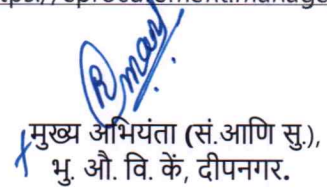 मुख्य अभियंता (सं.आणि सु.),
भु. औ. वि. कें, दीपनगर.